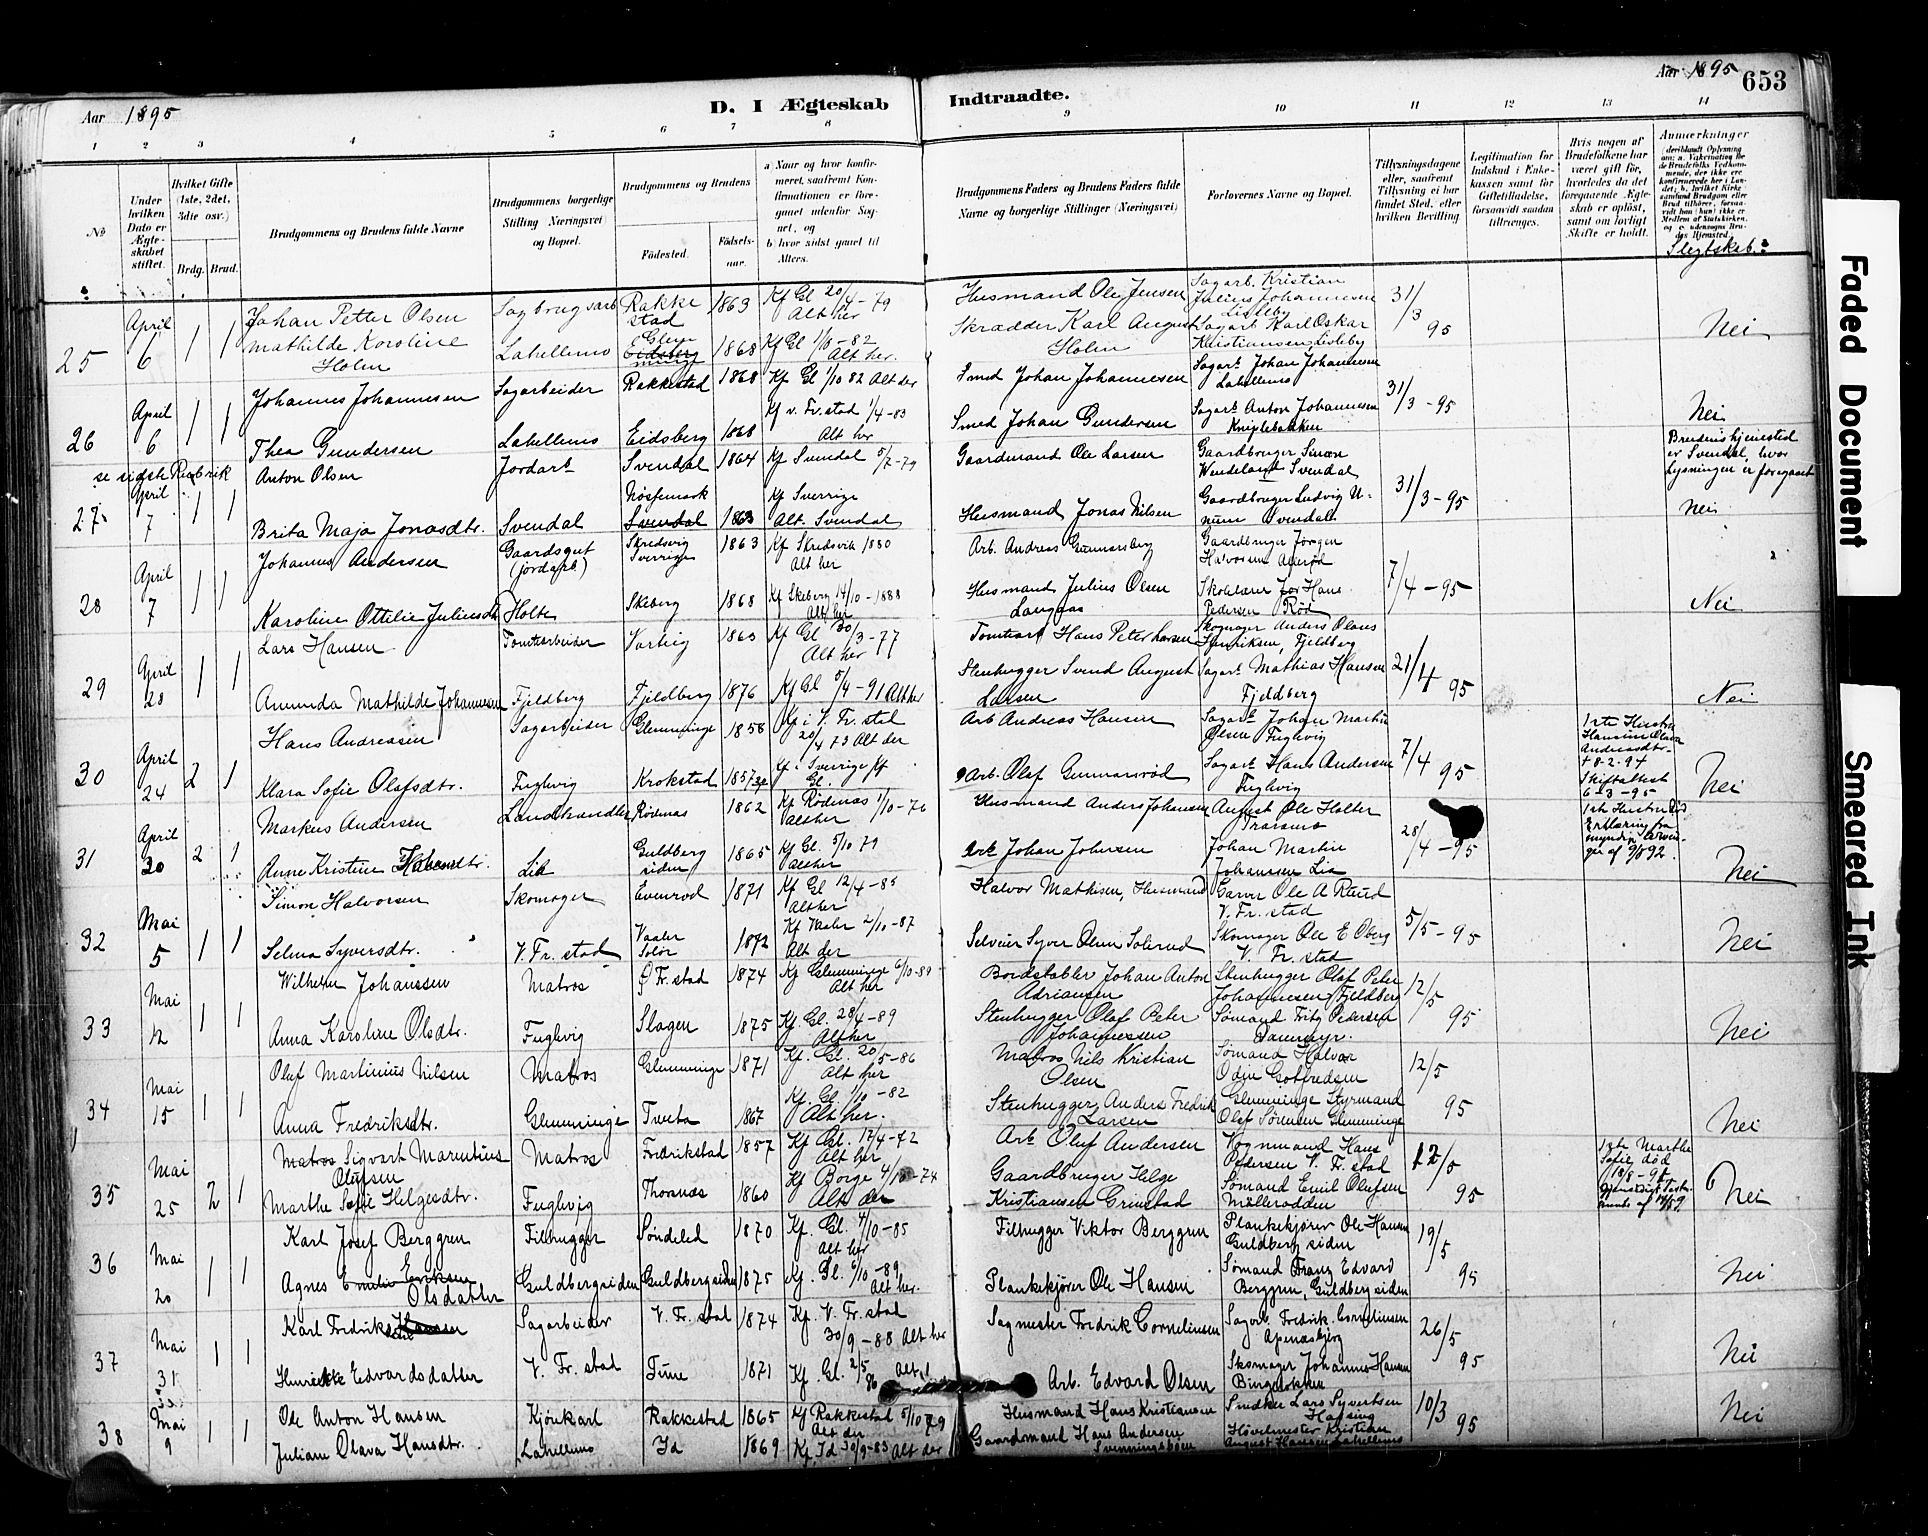 Aar 1895
D. I Ægteskab Indtraadte.
Aar 1895 653
1 2 3 4 5 6 7 8 9 10 11 12 13 14
№
Under hvilken Dato er Ægteskabet stiftet.
Hvilket Gifte (1ste, 2det, 3die osv.)
Brdg. Brud.
Brudgommens og Brudens fulde Navne
Brudgommens borgerlige Stilling Næringsvei og Bopæl.
Brudgommens og Brudens
Fødested. Fødselsaar.
a) Naar og hvor konfirmeret, saafremt Konfirmationen er foregaaet udenfor Sognet, og
b) hvor sidst gaaet til Alters.
Brudgommens Faders og Brudens Faders fulde Navne og borgerlige Stillinger (Næringsvei)
Forlovernes Navne og Bopæl.
Tillysningsdagene eller, saafremt Tillysning ei har fundet Sted, efter hvilken Bevilling.
Legitimation for Indskud i Enkekassen samt for Giftetilladelse, forsaavidt saadan tiltrænges.
Hvis nogen af Brudefolkene har været gift før, hvorledes da det foregaaende Ægteskab er opløst, samt om lovligt Skifte er holdt.
Anmærkninger
Slegtskab?
25 April 6 1 1
Johan Petter Olsen Sagbrugsarb Rakkestad 1863 Kf Gl 20/4-79 Alt her Husmand Ole Jensen Sagarb. Kristian Julius Johannesen Lisleby 31/3 95
Mathilde Karoline Holm Lahellemo Glemminge 1868 Kf Gl 1/10-82 Alt her. Skrædder Karl August Holm Sagarb Karl Oskar Kristiansen, Lisleby Nei
26 April 6 1 1
Johannes Johannesen Sagarbeider Rakkestad 1868 Kf Gl 1/10 82 Alt der Smed Johan Johannesen Sagarb. Johan Johannesen Lahellemo 31/3-95
Thea Gundersen Lahellemo Eidsberg 1868 Kf v. Fr.stad 1/4-83 Alt her Smed Johan Gundersen Sagarb. Anton Johannesen Kniplebakken Nei
se sidste Rubrik
27 April 7 1 1
Anton Olsen Jordarb Svendal 1864 Kf Svendal 5/7-79 Gaardmand Ole Larsen Gaardbruger Simon Svendal 31/3-95 Brudens hjemsted er Svendal, hvor Lysningen er foregaaet
Brita Maja Jonasdtr. Svendal Svendal 1863 Kf Sverrige Alt. Svendal Husmand Jonas Nilsen Gaardbruger Ludvig Svendal Nei
28 April 7 1 1
Johannes Andersen Gaardsgut (jordarb) Skredsvig Sverrige 1863 Kf Skredsvik 1880 Alt her Arb. Andreas Gunnarsberg Gaardbruger Jørgen Halvorsen 7/4-95
Karoline Ottilie Juliusdtr Holte Skeberg 1868 Kf Skeberg 14/10-1888 Alt her Husmand Julius Olsen Langaas Pedersen Rød Nei
29 April 28 1 1
Lars Hansen Tomtearbeider Varteig 1863 Kf Gl 30/3-77 Alt her Tomtearb Hans Peter Larsen Skogvager Anders Olaus Henriksen, Fjeldberg 21/4 95
Amunda Mathilde Johannesen Fjeldberg Fjeldberg 1876 Kf Gl 5/4-91 Alt her Stenhugger Svend August Larsen Sagarb. Mathias Hansen Fjeldberg Nei
30 April 24 2 1
Hans Andreasen Sagarbeider Glemminge 1858 Kf i V. Fr. sted 20/4 73 Alt der Arb Andreas Hansen Sagarb Johan Martin Olsen Fuglevig 7/4 95 1ste Hustru Hansine Olava Andreasdtr. + 8-2-94 Skifteattest 6-3-95
Klara Sofie Olafsdtr. Fuglevig Krokstad 1857 Kf i Sverige Arb. Olaf Gunnarsrød Sagarb Hans Andersen Fuglevig Nei
31 April 20 2 1
Markus Andersen Landhandler Rødenæs 1862 Kf Rødenæs 1/10-76 altther Husmand Anders Johansen August Ole Holter 28/4-95 1ste Hustru
Anne Kristine Johansdtr. Lia Guldbergsiden 1865 Kf Gl. 5/10 79 altther Arb Johan Johansen Johan Martin Johansen Lia Nei
32 Mai 5 1 1
Simon Halvorsen Skomager Evenrød 1871 Kf Gl 12/4-85 Altther Halvor Mathisen, Husmand Garver Ole A Ruud V. Fr. stad 5/5-95
Selma Syversdtr. V. Fr. stad Vaaler Solør 1872 Kf Vaaler 2/10-87 Alt der Selveier Syver Olsen Solerud Skomager Ole E Oberg V. Fr. stad Nei
33 Mai 12 1 1
Wilhelm Johansen Matros Ø Fr. stad 1874 Kf Glemminge 6/10-89 Alt her Bordstabler Johan Anton Adriansen Stenhugger Olaf Peter Johannesen Fjeldberg 12/5 95
Anna Karoline Olsdtr. Fuglevig Slagen 1875 Kf. Gl. 28/4-89 Altther Stenhugger Olaf Peter Johannessen Sømand Fritz Pedersen Nei
34 Mai 15 1 1
Oluf Martinius Nilsen Matros Glemminge 1871 Kf. Gl. 20/5-86 Alt her Matros Nils Kristian Olsen Sømand Halvor Odin Gotfredsen 12/5 95
Anna Fredriksdtr. Glemminge Tveta 1867 Kf. Gl 1/10-82 Alt her. Stenhugger Anders Fredrik Larsen Glemminge Styrmand Olaf Sørensen Glemminge Nei
35 Mai 25 2 1
Matros Sigvart Marentius Olufsen Matros Fredrikstad 1857 Kf Gl. 17/4-72 Alt her Arb Oluf Andersen Vognmand Hans Pedersen V. Fr. stad 12/5 95 1ste Marthe Sofie død
Marthe Sofie Helgesdtr. Fuglevig Thorsnæs 1860 Kf Borge 4/10-74 Alt der Gaardbruger Helge Kristiansen Grimstad Sømand Emil Olufsen Mellerødden Nei
36 Mai 20 1 1
Karl Josef Berggren Filhugger Søndeled 1870 Kf. Gl. 4/10-85 Alt her Filhugger Viktor Berggren Plankekjører Ole Hansen Guldbergsiden 19/5 95
Agnes Emilie Eriksen Olsdatter Guldbergsiden Guldbergsiden 1875 Kf. Gl. 6/10-89 Alt her. Plankekjører Ole Hansen Sømand Franz Edvard Berggren, Guldbergsiden Nei
37 Mai 31 1 1
Karl Fredriksen Hansen Sagarbeider V. Fr. stad 1874 Kf. V. Fr. stad 30/9-88 Alt her Sagmester Fredrik Corneliussen Sagarb. Fredrik Corneliussen Apenesbjerg 26/5 95
Henrikke Edvardsdatter V. Fr. stad Tune 1871 Kf. Gl. 2/5 86 Arb. Edvard Olsen Skomager Johannes Hansen Nei
38 Mai 9 1 1
Ole Anton Hansen Kjørekarl Rakkestad 1865 Kf Rakkestad 5/10 79 Alt der Husmand Hans Kristiansen Snedker Lars Syvertsen 10/3 95
Juliane Olava Hansdtr. Lahellemo Id 1869 Kf. Id 30/9-83 Alt der Gaardmand Hans Andersen Høvelmester Kristian August Hansen Lahellemo Nei
Faded Document
Smeared Ink